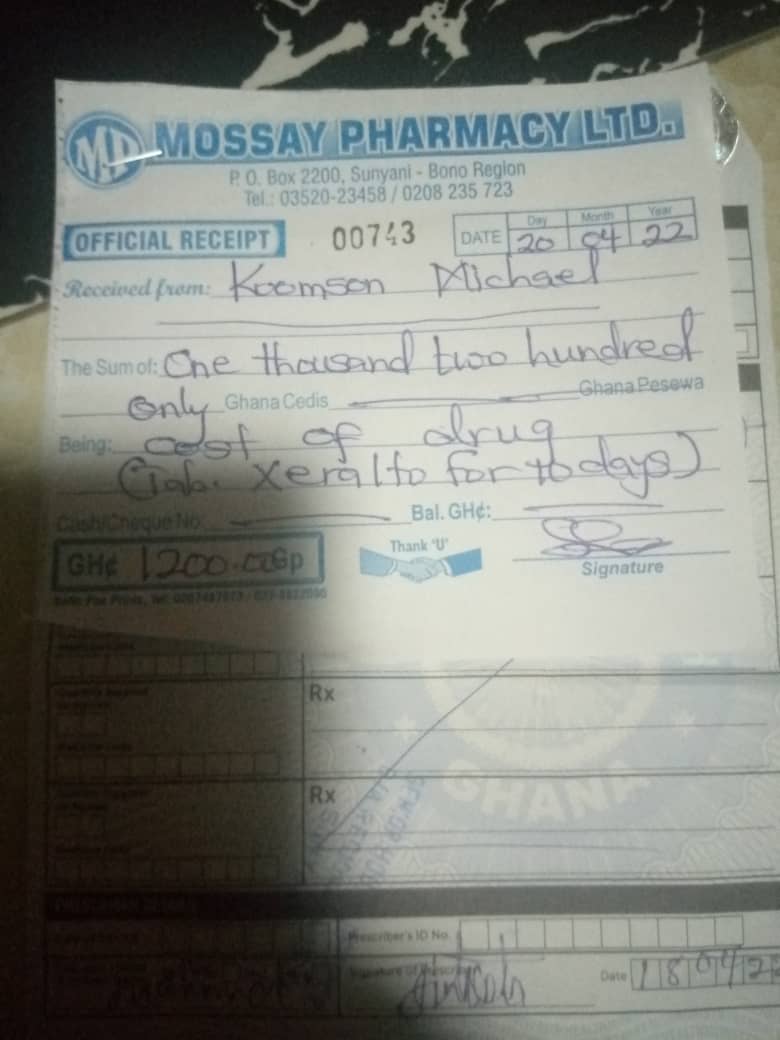 MP MOSSAY PHARMACY LTD.
P. O. Box 2200, Sunyani - Bono Region
Tel.: 03520-23458 / 0208 235 723
OFFICIAL RECEIPT 00743 DATE Day Month Year
20 04 22
Received from: Koomson Michael
The Sum of: One thousand two hundred
only Ghana Cedis Ghana Pesewa
Being: cost of drug
(Tab. Xeralto for 10 days)
Cash/Cheque No: Bal. GH¢:
GH¢ 1200.00 Gp Thank 'U'
Signature
Rx
Rx
GHANA
Prescriber's ID No.
Signature of Prescriber Date 18 04 2